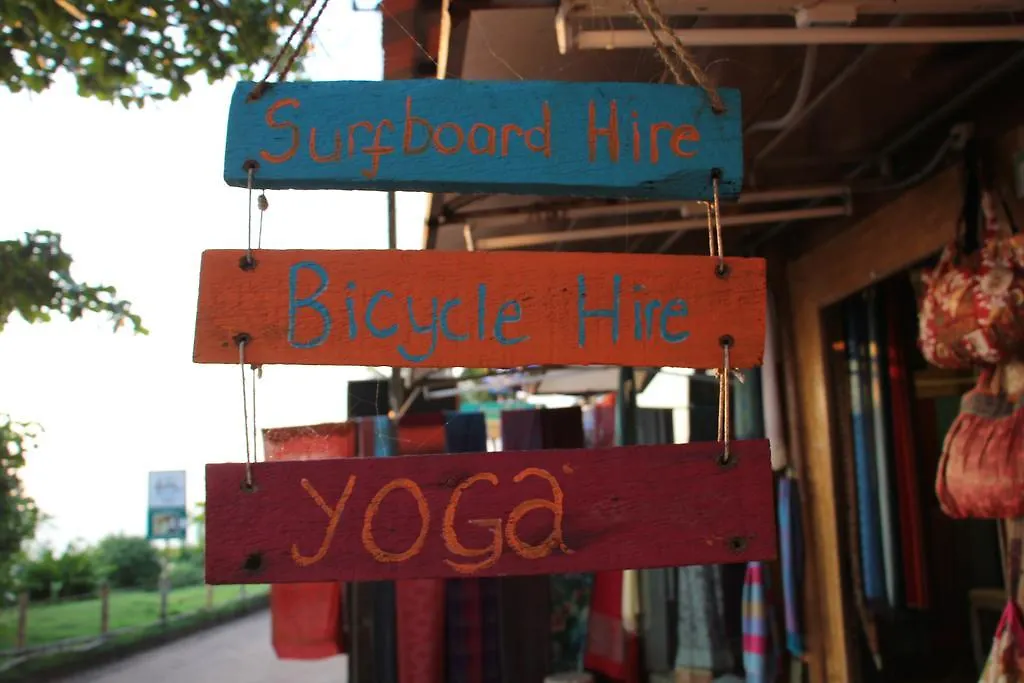 Surfboard Hire
Bicycle Hire
YOGa